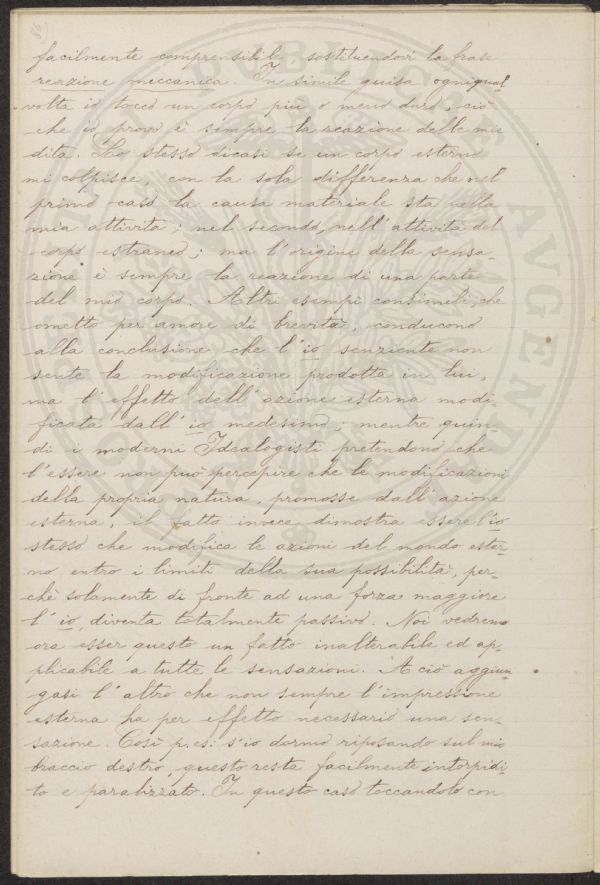 86)
facilmente comprensibile, sostituendovi la frase
reazione meccanica. In simile guisa ogniqual
volta io tocco un corpo più o meno duro, ciò
che io provo è sempre la reazione delle mie
dita. Lo stesso dicasi se un corpo esterno
mi colpisce, con la sola differenza che nel
primo caso la causa materiale sta nella
mia attività; nel secondo, nell'attività del
corpo estraneo; ma l'origine della sensa-
zione è sempre la reazione di una parte
del mio corpo. Altri esempi consimili, che
ometto per amore di brevità, conducono
alla conclusione che l'io senziente non
sente la modificazione prodotta in lui,
ma l'effetto dell'azione esterna modi
ficata dall'io medesimo; mentre quin-
di i moderni Idealogisti pretendono che
l'essere non può percepire che le modificazioni
della propria natura, promosse dall'azione
esterna, il fatto invece dimostra essere l'io
stesso che modifica le azioni del mondo ester-
no entro i limiti della sua possibilità, per-
chè solamente di fronte ad una forza maggiore
l'io, diventa totalmente passivo. Noi vedremo
ora esser questo un fatto inalterabile ed ap-
plicabile a tutte le sensazioni. A ciò aggiun
gasi l'altro che non sempre l'impressione
esterna ha per effetto necessario una sen-
sazione. Così p. es: s'io dormo riposando sul mio
braccio destro, questo resta facilmente intorpidi-
to e paralizzato. In questo caso toccandolo con